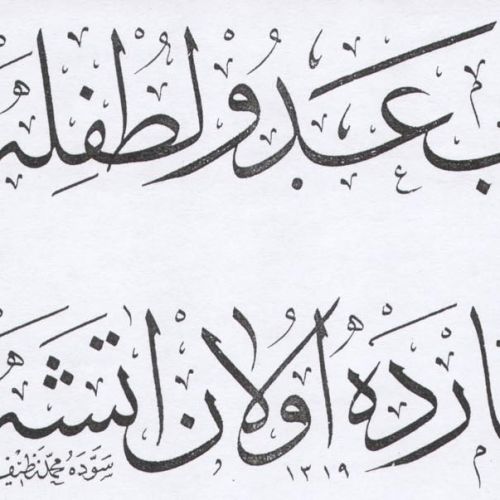 ب عدو لطفله
نارده اولان اتشه
سوده محمد نظيف ١٣١٩